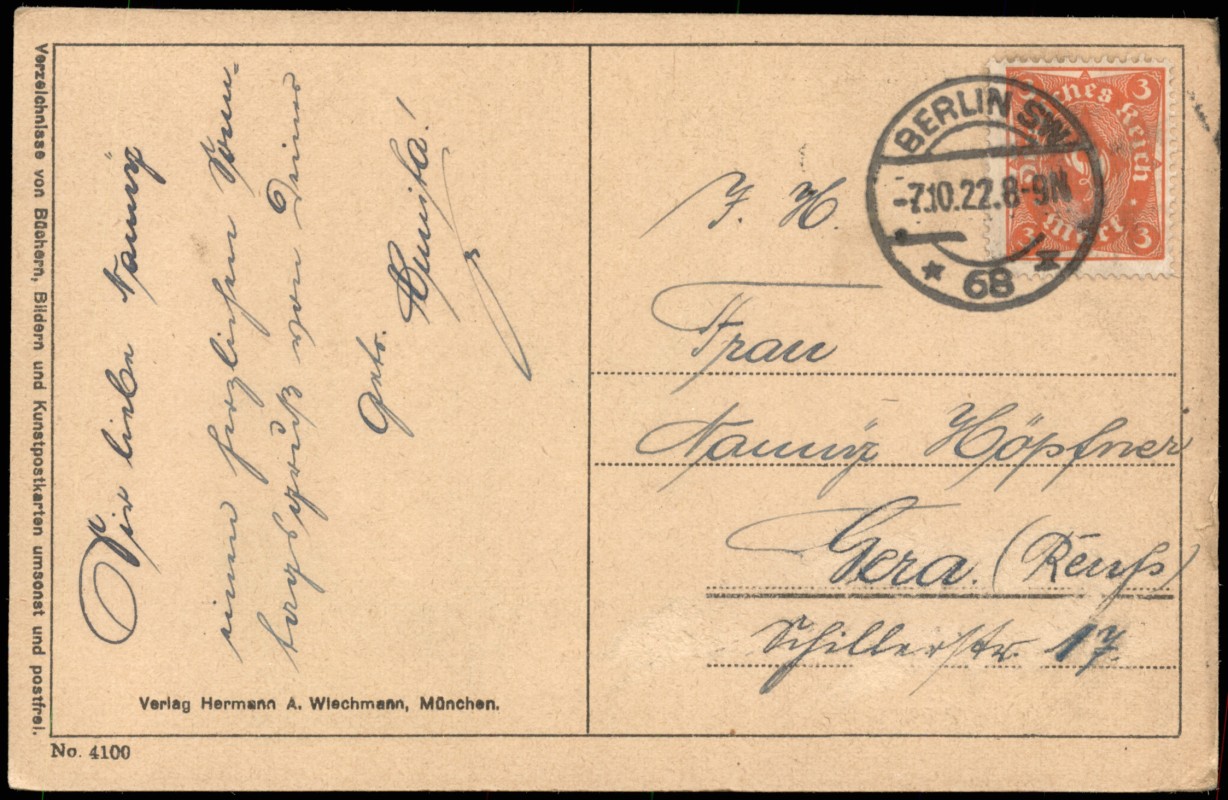 Dir liebe Nanny
einen herzlichen Sonn-
tagsgruß von Deiner
Getr.
Verlag Hermann A. Wiechmann, München.
Verzeichnisse von Büchern, Bildern und Kunstpostkarten umsonst und postfrei.
No. 4100
BERLIN SW
-7.10.22.8-9N
* 68 z
3 3
Deutsches Reich
3 Mark 3
J. H.
Frau
Nanny Höpfner
Gera. (Reuß)
Schillerstr. 17.